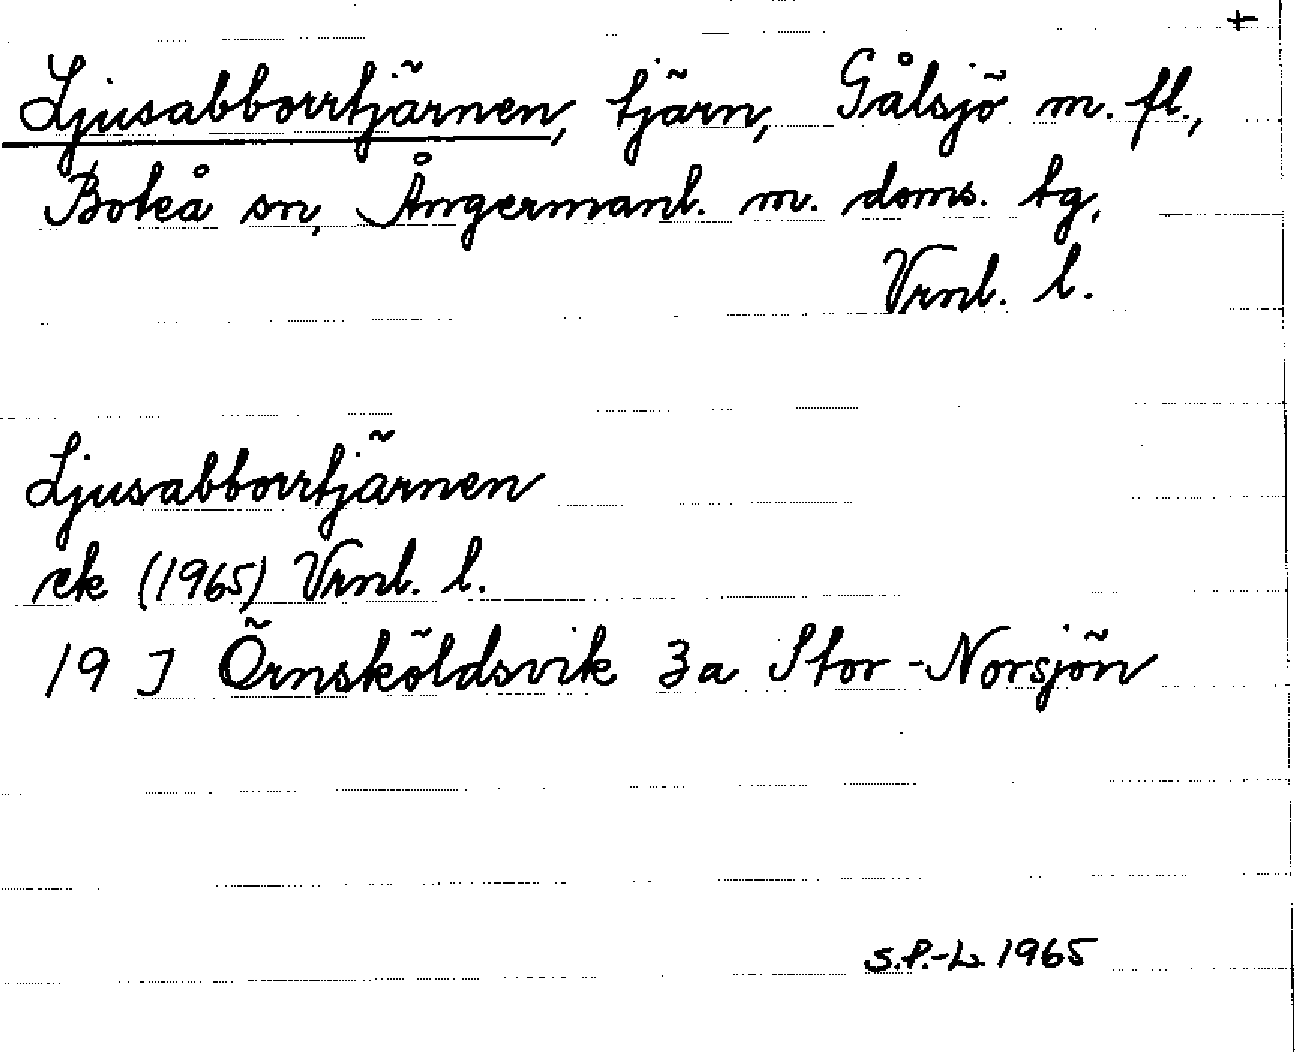 +
Ljusabborrtjärnen, tjärn, Gålsjö m. fl.,
Boteå sn, Ångermanl. m. doms. tg,
Vrnl. l.
Ljusabborrtjärnen
ek (1965) Vrnl. l.
19 J Örnsköldsvik 3a Stor-Norsjön
S.P.-L 1965